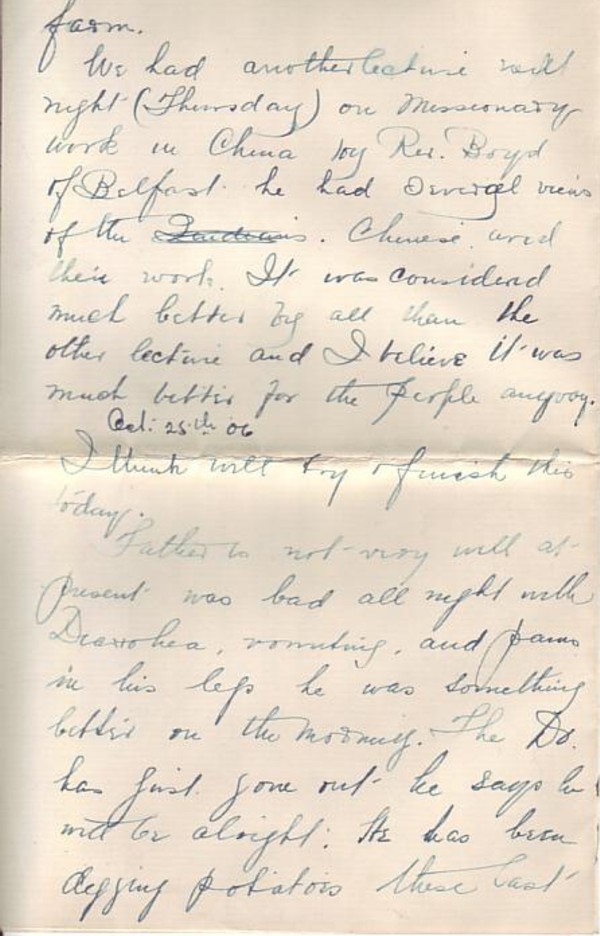 farm.
We had another lecture
night (Thursday) on Missionary
work in China by Rev. Boyd
of Belfast. he had several views
of the . Chinese. and
their work. It was considerd
much better by all than the
other lecture and I believe it was
much better for the people anyway.
Oct. 25th 06
I think will try & finish this
today.
Father is not very well at
present was bad all night with
Diarrohea, vomiting, and pains
in his legs he was something
better on the morning. The Dr.
has just gone out he says he
will be alright. He has been
digging potatoes these last